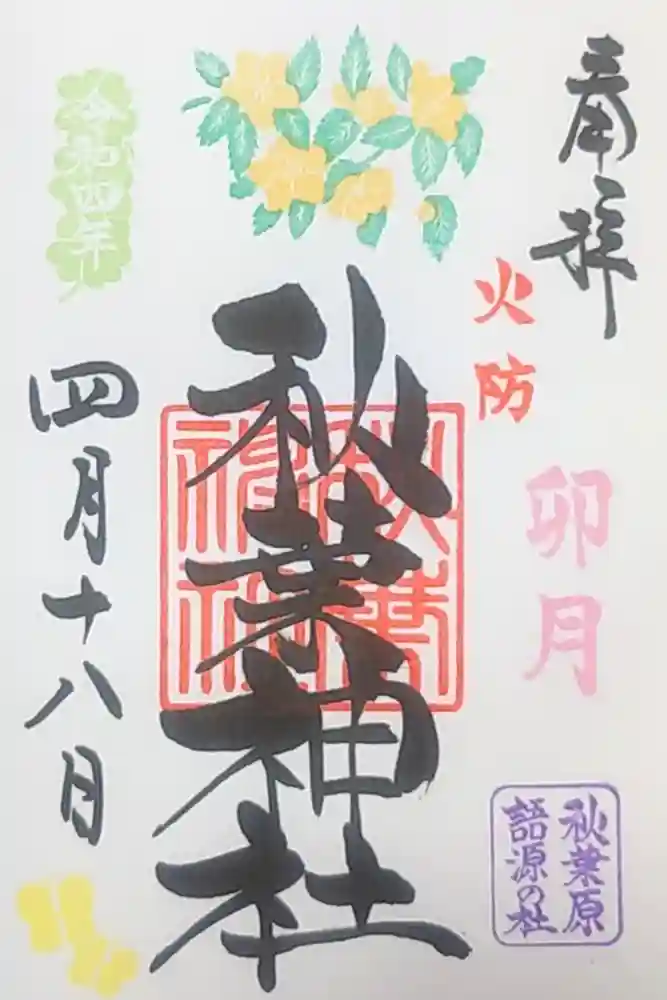 奉拝
火防
卯月
秋葉原
語源の社
秋葉神社
秋葉
神社
令和四年
四月十八日